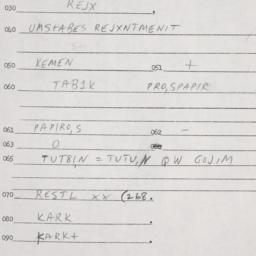 030 REJX .
040 UMSTABES REJXNTMENIT
050 KEMEN 051 +
060 TAB1K PRO,SPAPIR
061 PAPIRO,S 062 -
063 O
065 TUT8I,N = TUTU,N QW GOJIM
070 RESTL xx (268.
080 KARK .
090 KARK+ .